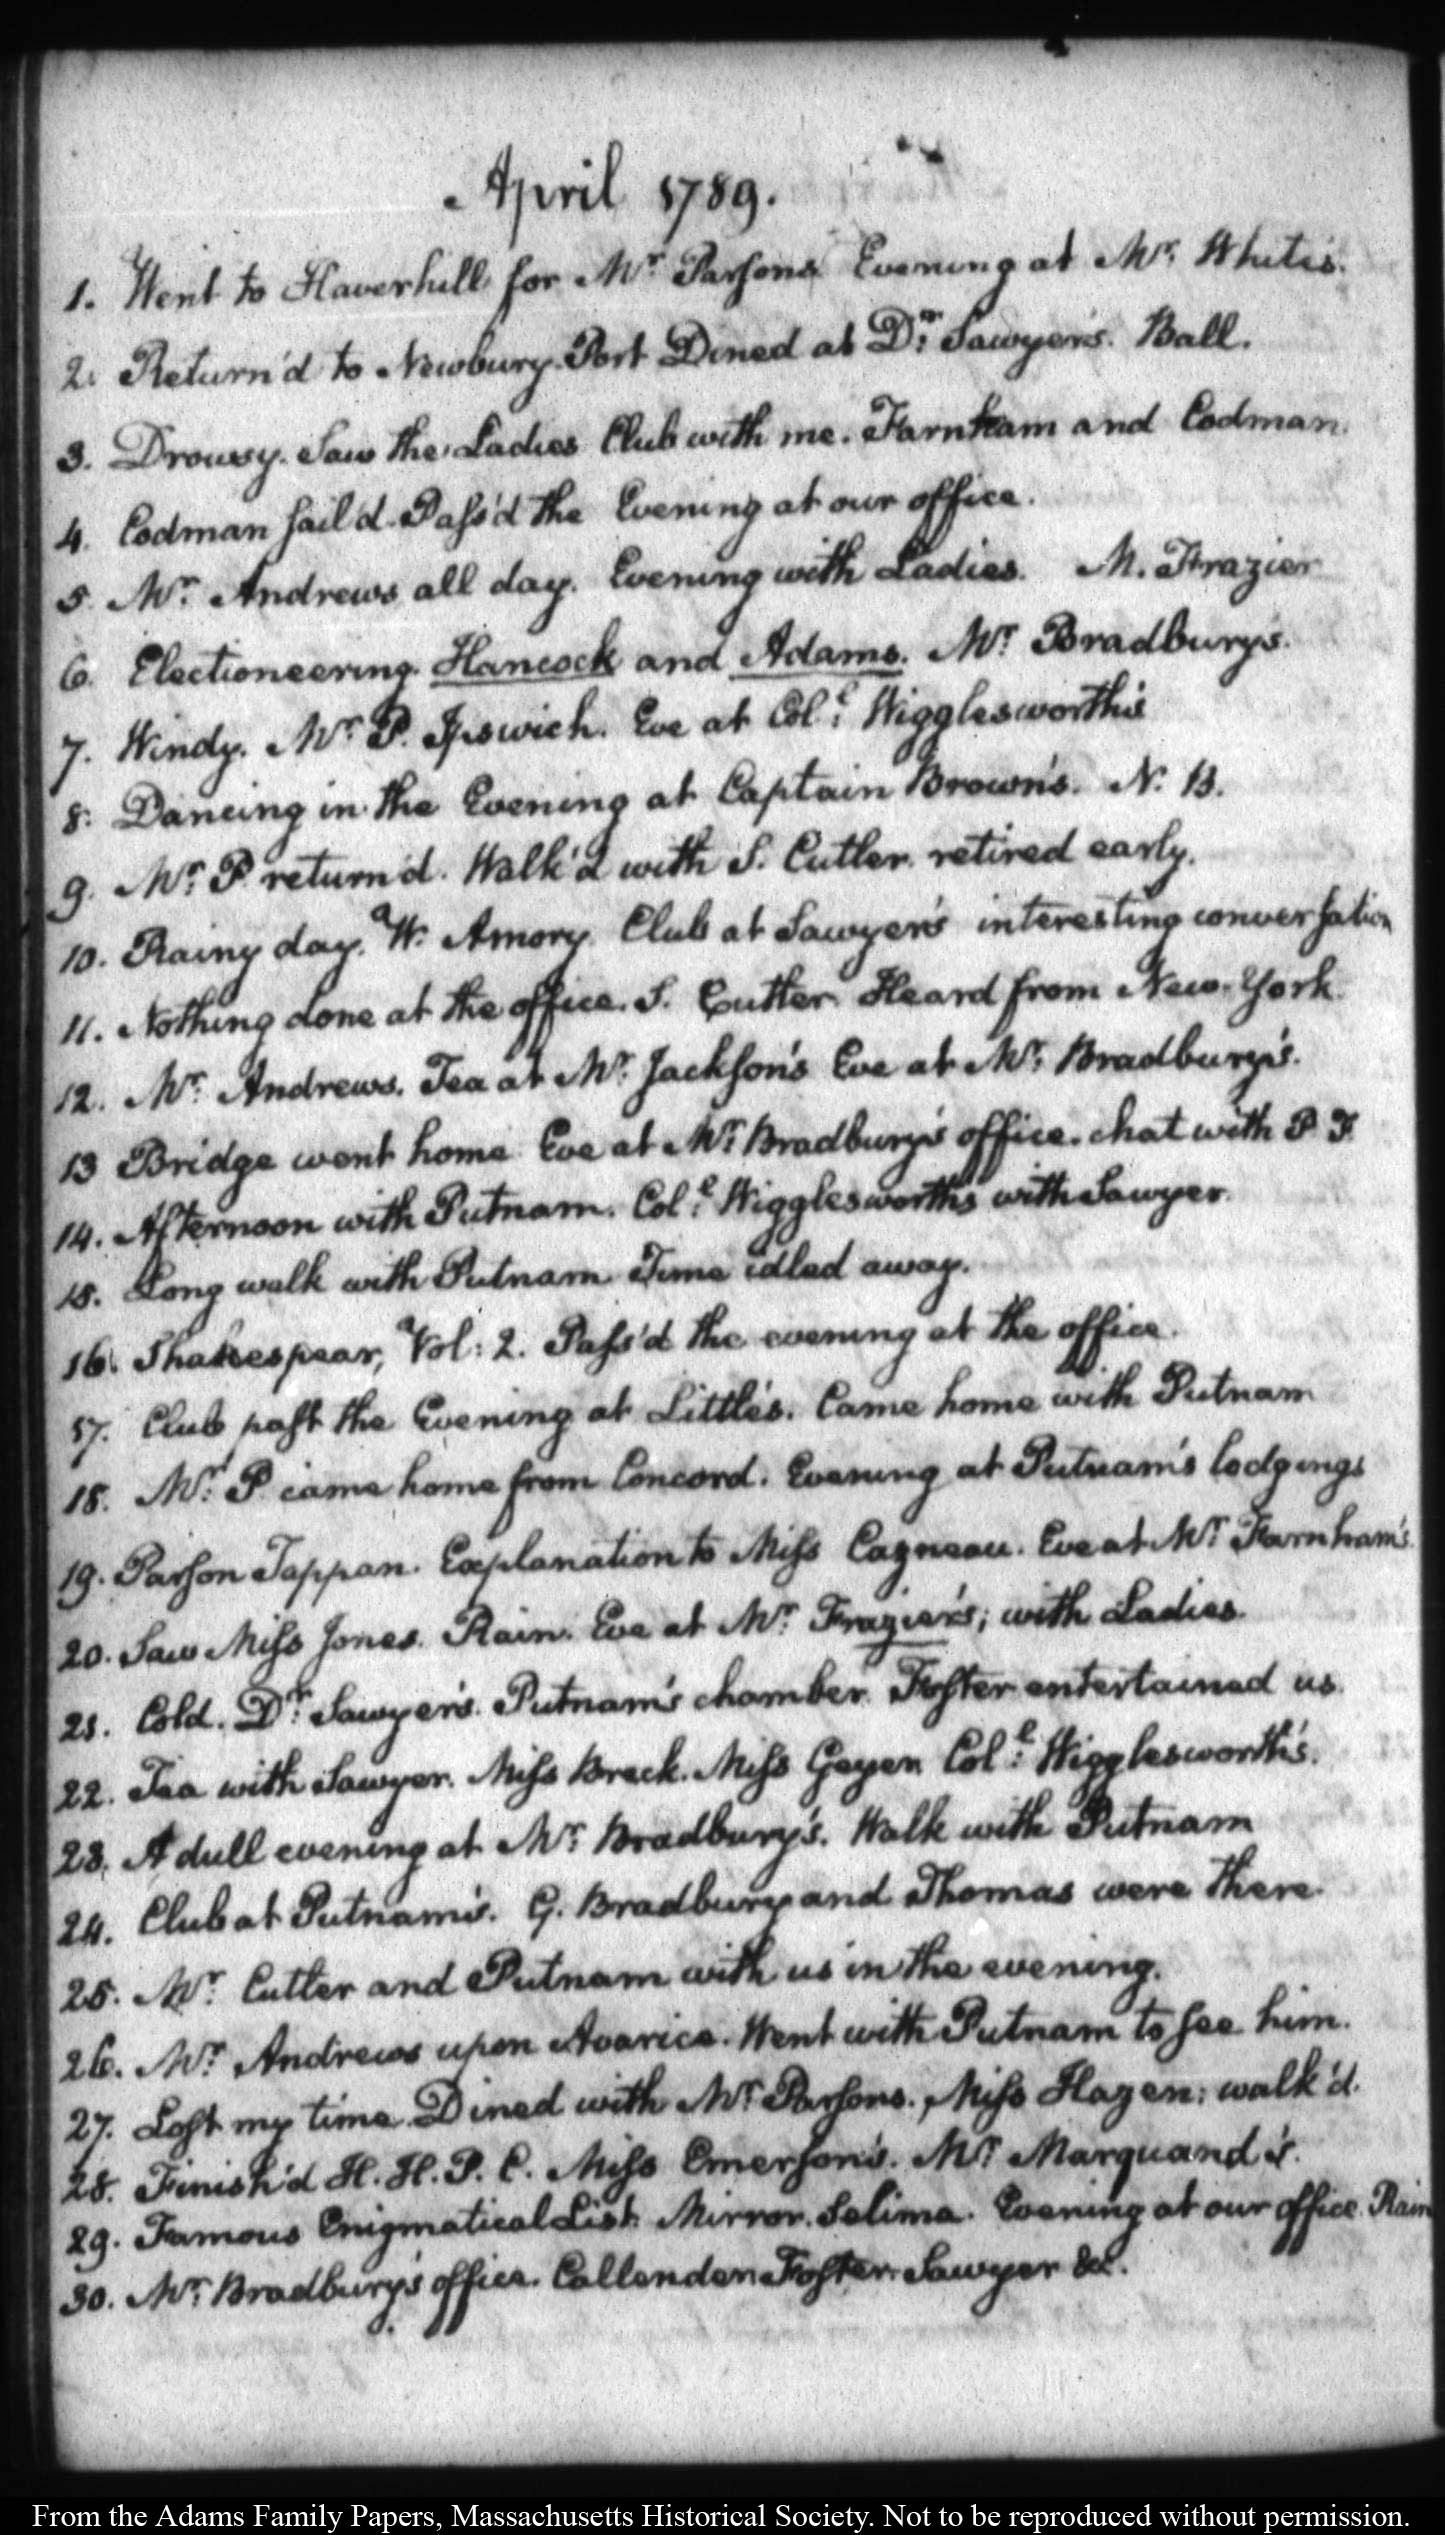 April 1789.
1. Went to Haverhill for Mr. Parsons Evening at Mr. White's.
2. Return'd to Newbury-Port Dined at Dr. Sawyer's. Ball.
3. Drowsy. Saw the Ladies Club with me. Farnham and Codman.
4. Codman sail'd. Pass'd the Evening at our office.
5. Mr. Andrews all day. Evening with Ladies. M. Frazier
6. Electioneering. Hancock and Adams. Mr. Bradbury's.
7. Windy. Mr. P. Ipswich. Eve at Coll. Wigglesworth's
8. Dancing in the Evening at Captain Brown's. N. B.
9. Mr. P. return'd. Walk'd with S. Cutler. retired early.
10. Rainy day. W. Amory. Club at Sawyer's interesting conversation
11. Nothing done at the office. S. Cutler. Heard from New-York.
12. Mr. Andrews. Tea at Mr. Jackson's Eve at Mr. Bradbury's.
13 Bridge went home Eve at Mr. Bradbury's office. chat with P. F.
14. Afternoon with Putnam. Coll. Wigglesworth's with Sawyer.
15. Long walk with Putnam. Time idled away.
16. Shakespear, Vol: 2. Pass'd the evening at the office.
17. Club past the Evening at Little's. Came home with Putnam
18. Mr. P. came home from Concord. Evening at Putnam's lodgings
19. Parson Tappan. Explanation to Miss Cazneau. Eve at Mr. Farnham's.
20. Saw Miss Jones. Rain. Eve at Mr. Frazier's; with Ladies.
21. Cold. Dr. Sawyer's. Putnam's chamber. Foster entertained us.
22. Tea with Sawyer. Miss Breck. Miss Geyer. Coll. Wigglesworth's.
23. A dull evening at Mr. Bradbury's. Walk with Putnam
24. Club at Putnam's. G. Bradbury and Thomas were there.
25. Mr. Cutler and Putnam with us in the evening.
26. Mr. Andrews upon Avarice. Went with Putnam to see him.
27. Lost my time. Dined with Mr. Parsons. Miss Hazen: walk'd.
28. Finish'd H. H. P. C. Miss Emerson's. Mr. Marquand's.
29. Famous Enigmatical List. Mirror. Selima. Evening at our office. Rain
30. Mr. Bradbury's office. Callender. Foster. Sawyer &c.
From the Adams Family Papers, Massachusetts Historical Society. Not to be reproduced without permission.